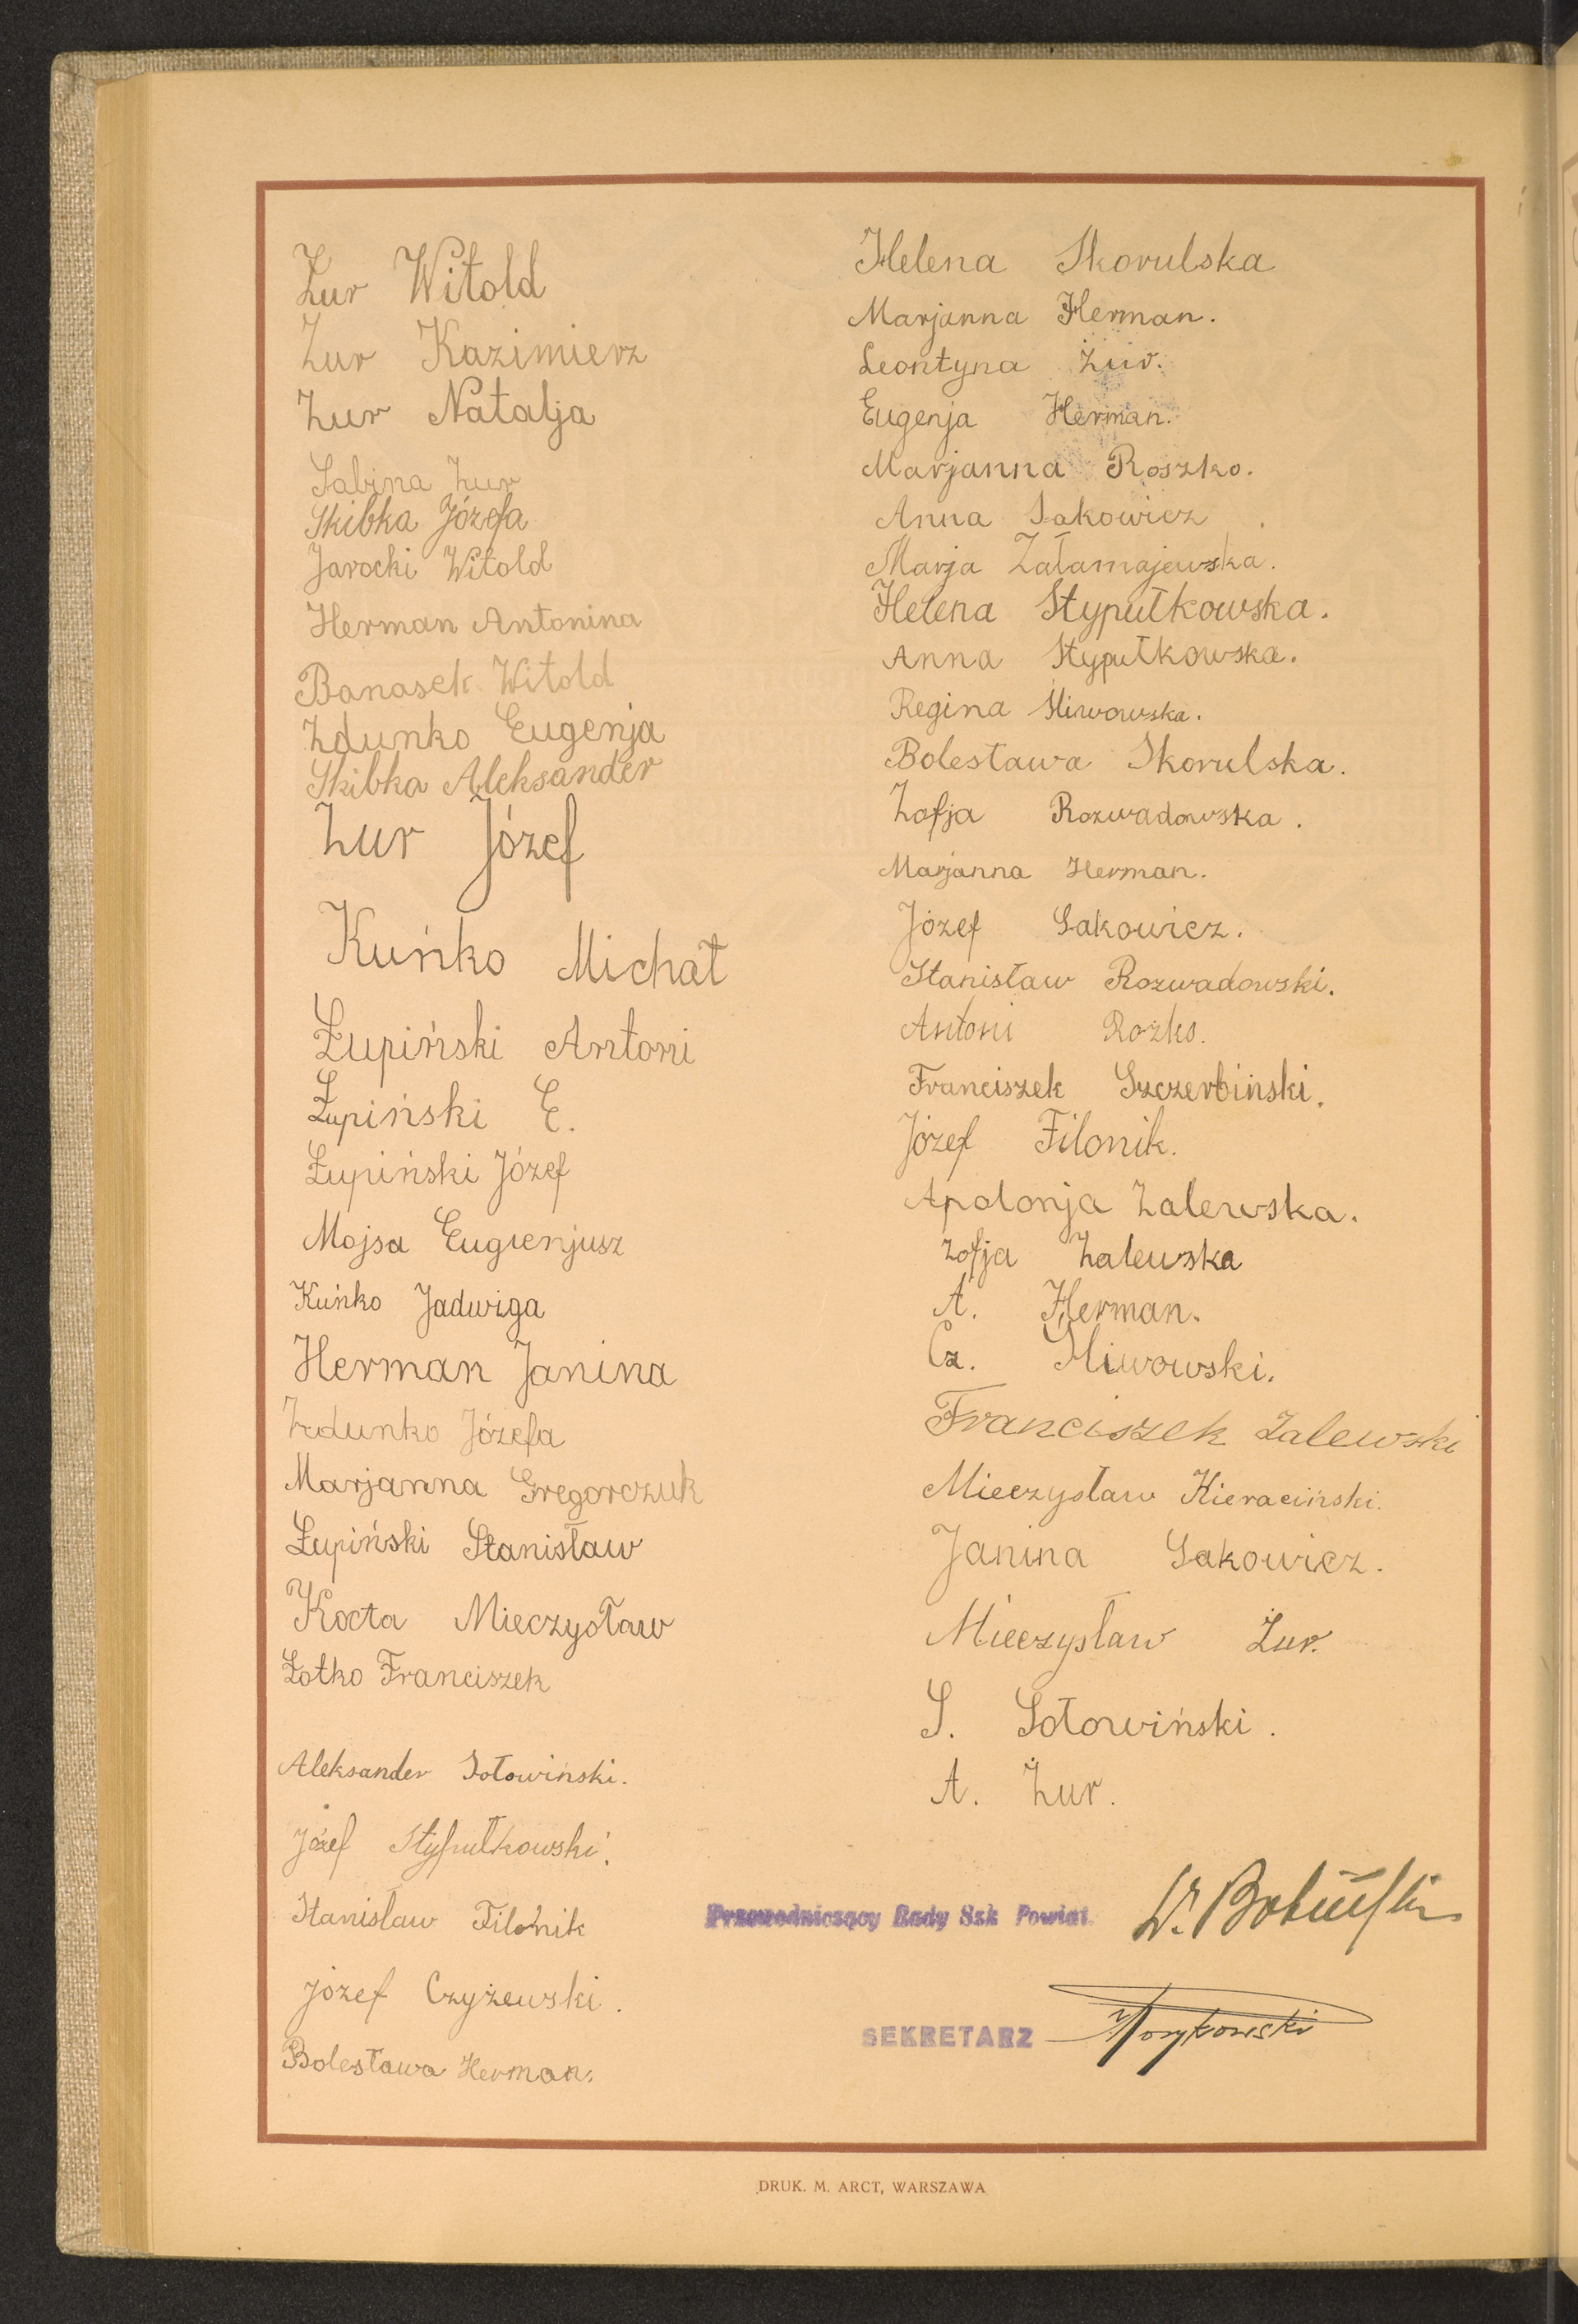 Żur Witold
Żur Kazimierz
Żur Natalja
Sabina Żur
Skibka Józefa
Jarocki Witold
Herman Antonina
Banasek Witold
Zdunko Eugenja
Skibka Aleksander
Żur Józef
Kuńko Michał
Łupiński Antoni
Łupiński E.
Łupiński Józef
Mojsa Eugienjusz
Kuńko Jadwiga
Herman Janina
Zdunko Józefa
Marjanna Gregorczuk
Łupiński Stanisław
Kocta Mieczysław
Łotko Franciszek
Aleksander Sołowiński.
Józef Stypułkowski.
Stanisław Filonik
Józef Czyżewski.
Bolesława Herman.
Helena Skorulska
Marjanna Herman.
Leontyna Żur.
Eugenja Herman.
Marjanna Roszko.
Anna Sakowicz
Marja Załamajewska.
Helena Stypułkowska.
Anna Stypułkowska.
Regina Śliwowska.
Bolesława Skorulska.
Zofja Rozwadowska.
Marjanna Herman.
Józef Sakowicz.
Stanisław Rozwadowski.
Antoni Rożko.
Franciszek Szczerbiński.
Józef Filonik.
Apolonja Zalewska.
Zofja Zalewska
A. Herman.
Cz. Śliwowski.
Franciszek Zalewski
Mieczysław Kieraciński.
Janina Sakowicz.
Mieczysław Żur.
S. Sołowiński.
A. Żur.
Przewodniczący Rady Szk Powiat.
SEKRETARZ
DRUK. M. ARCT, WARSZAWA